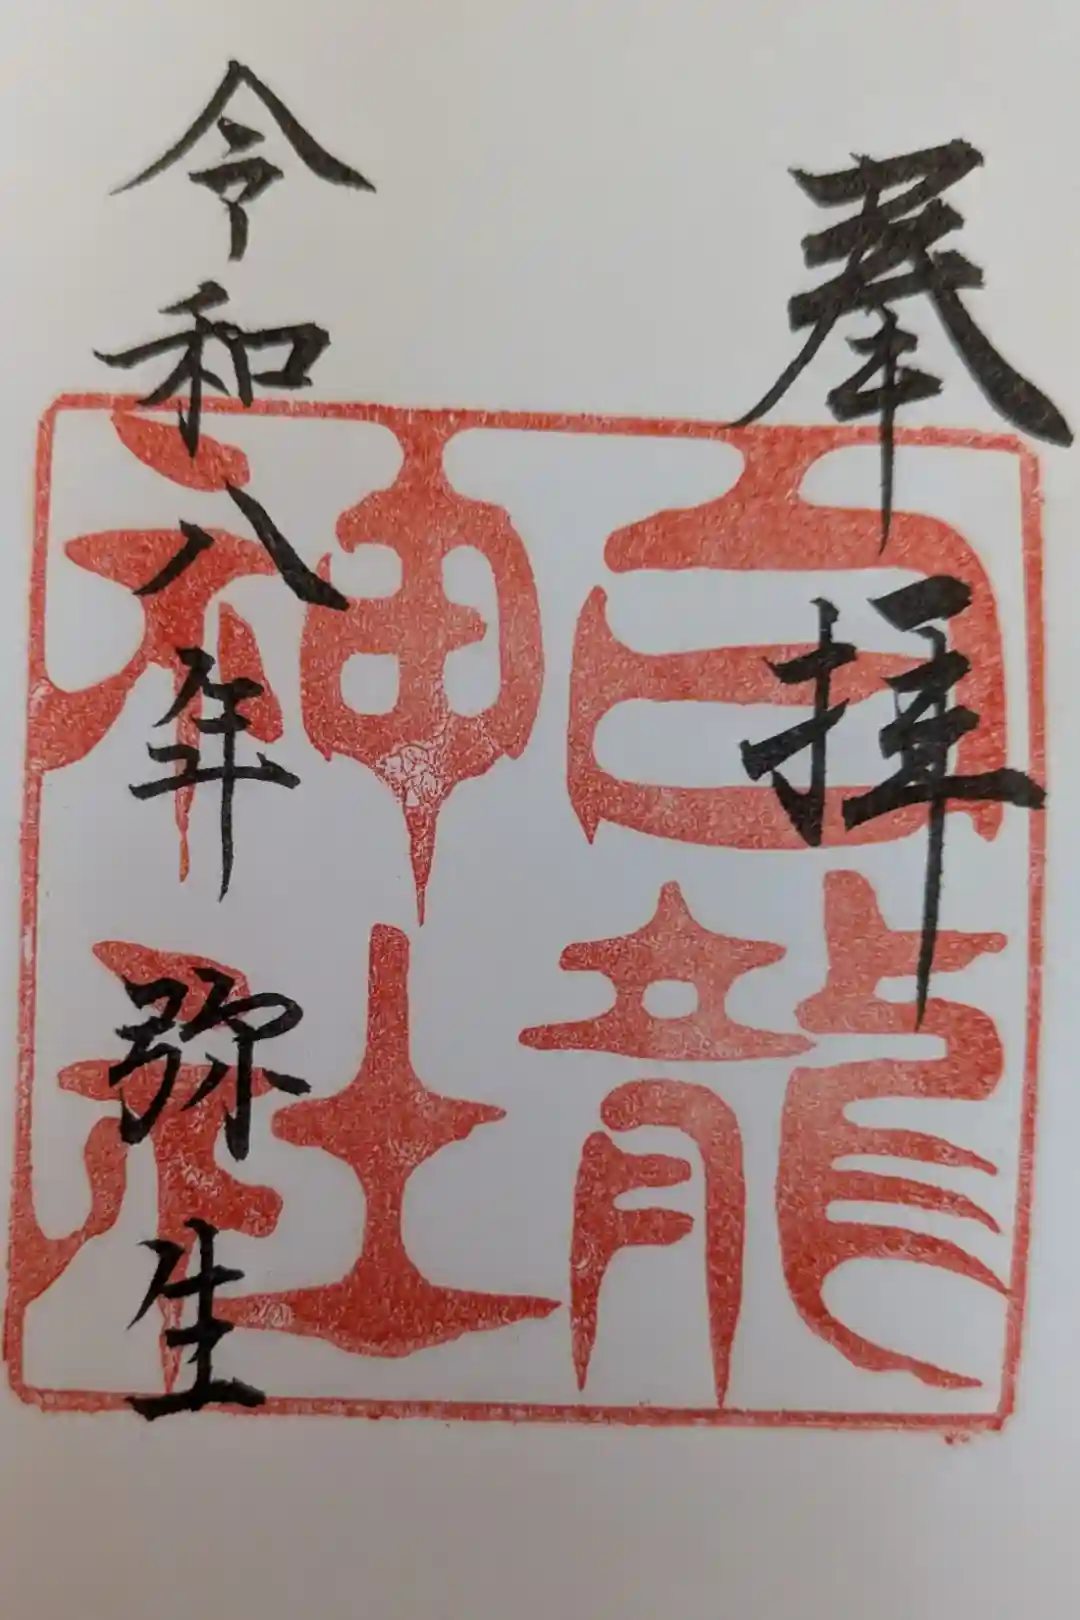 奉拝
白龍
神社
令和八年弥生